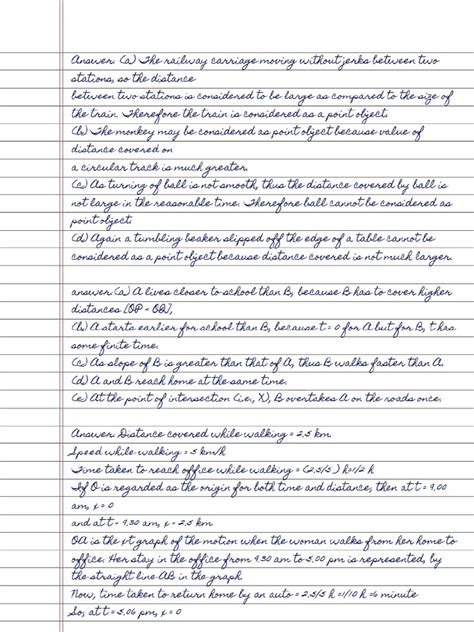 Answer: (a) The railway carriage moving without jerks between two
stations, so the distance
between two stations is considered to be large as compared to the size of
the train. Therefore the train is considered as a point object.
(b) The monkey may be considered as point object because value of
distance covered on
a circular track is much greater.
(c) As turning of ball is not smooth, thus the distance covered by ball is
not large in the reasonable time. Therefore ball cannot be considered as
point object.
(d) Again a tumbling beaker slipped off the edge of a table cannot be
considered as a point object because distance covered is not much larger.
answer: (a) A lives closer to school than B, because B has to cover higher
distances [OP < OQ],
(b) A starts earlier for school than B, because t = 0 for A but for B, t has
some finite time.
(c) As slope of B is greater than that of A, thus B walks faster than A.
(d) A and B reach home at the same time.
(e) At the point of intersection (i.e., X), B overtakes A on the roads once.
Answer: Distance covered while walking = 2.5 km.
Speed while walking = 5 km/h
Time taken to reach office while walking = (2.5/5 ) h=1/2 h
If O is regarded as the origin for both time and distance, then at t = 9.00
am, x = 0
and at t = 9.30 am, x = 2.5 km
OA is the x-t graph of the motion when the woman walks from her home to
office. Her stay in the office from 9.30 am to 5.00 pm is represented, by
the straight line AB in the graph
Now, time taken to return home by an auto = 2.5/5 h =1/10 h =6 minute
So, at t = 5.06 pm, x = 0